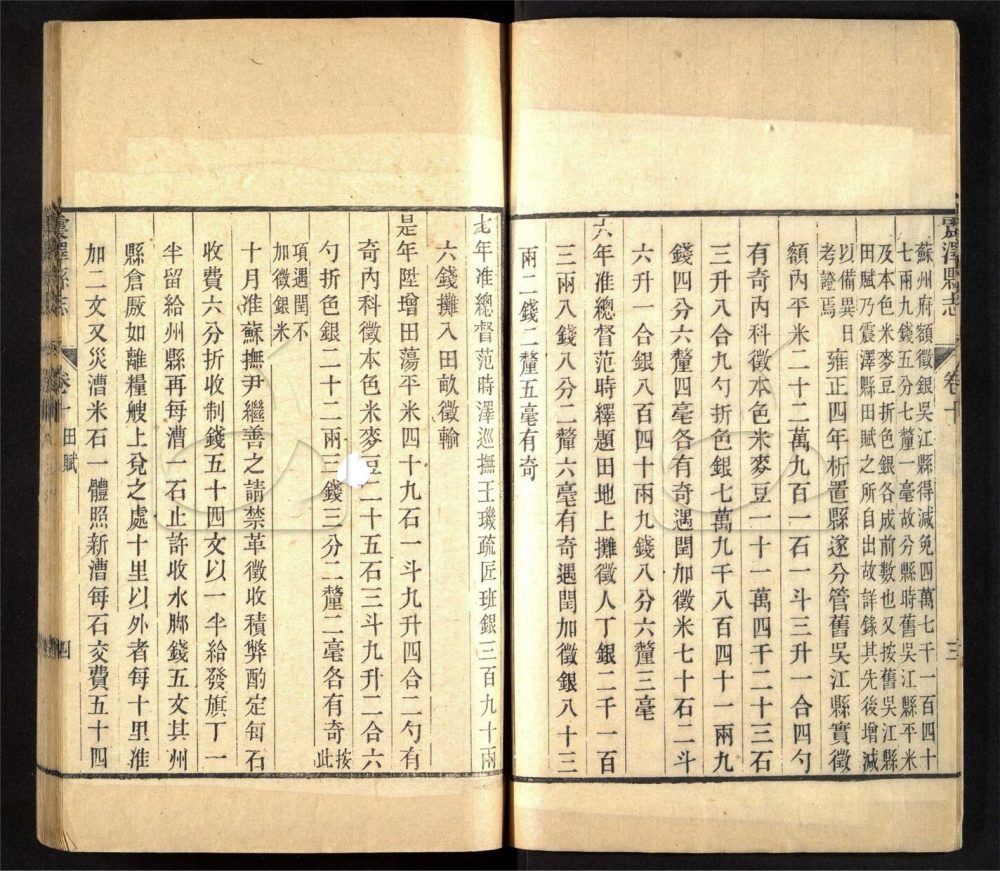 震澤縣志
卷十
三
蘇州府額徵銀吳江縣得減免四萬七千一百四十
七兩九錢五分七釐一毫故分縣時舊吳江縣平米
及本色米麥豆折色銀各成前數也又按舊吳江縣
田賦乃震澤縣田賦之所自出故詳錄其先後增減
以備異日
考證焉
雍正四年析置縣遂分管舊吳江縣實徵
額內平米二十二萬九百一石一斗三升一合四勺
有奇內科徵本色米麥豆一十一萬四千二十三石
三升八合九勺折色銀七萬九千八百四十一兩九
錢四分六釐四毫各有奇遇閏加徵米七十石二斗
六升一合銀八百四十兩九錢八分六釐三毫
六年准總督范時繹題田地上攤徵人丁銀二千一百
三兩八錢八分二釐六毫有奇遇閏加徵銀八十三
兩二錢二釐五毫有奇
七年准總督范時澤巡撫王璣疏匠班銀三百九十兩
六錢攤入田畝徵輸
是年陞增田蕩平米四十九石一斗九升四合二勺有
奇內科徵本色米麥豆二十五石三斗九升二合六
勺折色銀二十二兩三錢三分二釐二毫各有奇
按
此
項遇閏不
加徵銀米
十月准蘇撫尹繼善之請禁革徵收積弊酌定每石
收費六分折收制錢五十四文以一半給發旗丁一
半留給州縣再每漕一石止許收水脚錢五文其州
縣倉厫如離糧艘上兌之處十里以外者每十里准
加二文又災漕米石一體照新漕每石交費五十四
震澤縣志
卷十
田賦
四